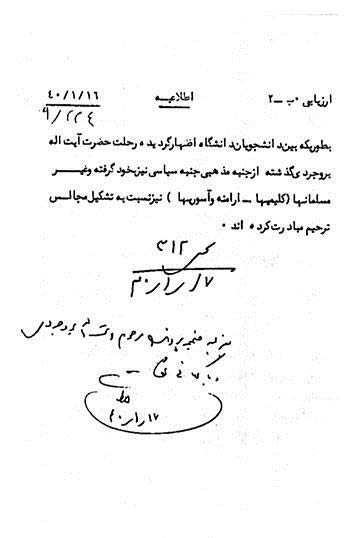 ارزیابی ۰ب ــ ۲ اطلاعیـــه ۴۰/۱/۱۶
۹/۲۲۴
بطوریکه بین دانشجویان دانشگاه اظهارگردیده رحلت حضرت آیت اله
بروجردی گذشته ازجنبه مذهبی جنبه سیاسی نیزبخود گرفته وغیـر
مسلمانها (کلیمیها ــ ارامنه وآسوریها ) نیزنسبت به تشکیل مجالـس
ترحیم مبادرت کرده اند ۰
۳۱۲
۱۷/۱/۴۰
مرحوم بروجردی
۱۷/۱/۴۰